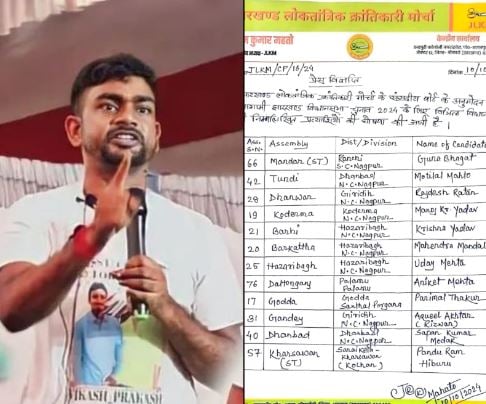 झारखण्ड लोकतांत्रिक क्रांतिकारी मोर्चा
कुमार महतो
केन्द्रीय कार्यालय
JLKM
JLKM/CP/18/24
दिनांक 10/10
प्रेस विज्ञप्ति
लोकतांत्रिक क्रांतिकारी मोर्चा के संसदीय बोर्ड के अनुमोदन
झारखण्ड विधानसभा चुनाव 2024 के लिए विभिन्न
प्रत्याशियों की घोषणा की जाती है ।
Ass. S.N. Assembly Dist/Division Name of Candidate
66 Mandar (ST) Ranchi S.C.Nagpur Guna Bhagat
42 Tundi Dhanbad N.C.Nagpur Motilal Mahto
28 Dhanwar Giridih N.C.Nagpur Rajdesh Ratan
19 Koderma Koderma N.C.Nagpur Manoj Kr Yadav
21 Barhi Hazaribagh N.C.Nagpur Krishna Yadav
20 Barkattha Hazaribagh N.C.Nagpur Mahendra Mandal
25 Hazaribagh Hazaribagh N.C.Nagpur Uday Mehta
76 Daltonganj Palamu Palamu Aniket Mehta
17 Godda Godda Santhal Pargana Parimal Thakur
31 Gandey Giridih N.C.Nagpur Aqueel Akhtar (Rizwan)
40 Dhanbad Dhanbad N.C.Nagpur Sapan Kumar Modak
57 Kharsawan (ST) Saraikela-Kharsawan (Kolhan) Pandu Ram Hiburu
Mahato
10/10/2024
VIKASH PRAKASH